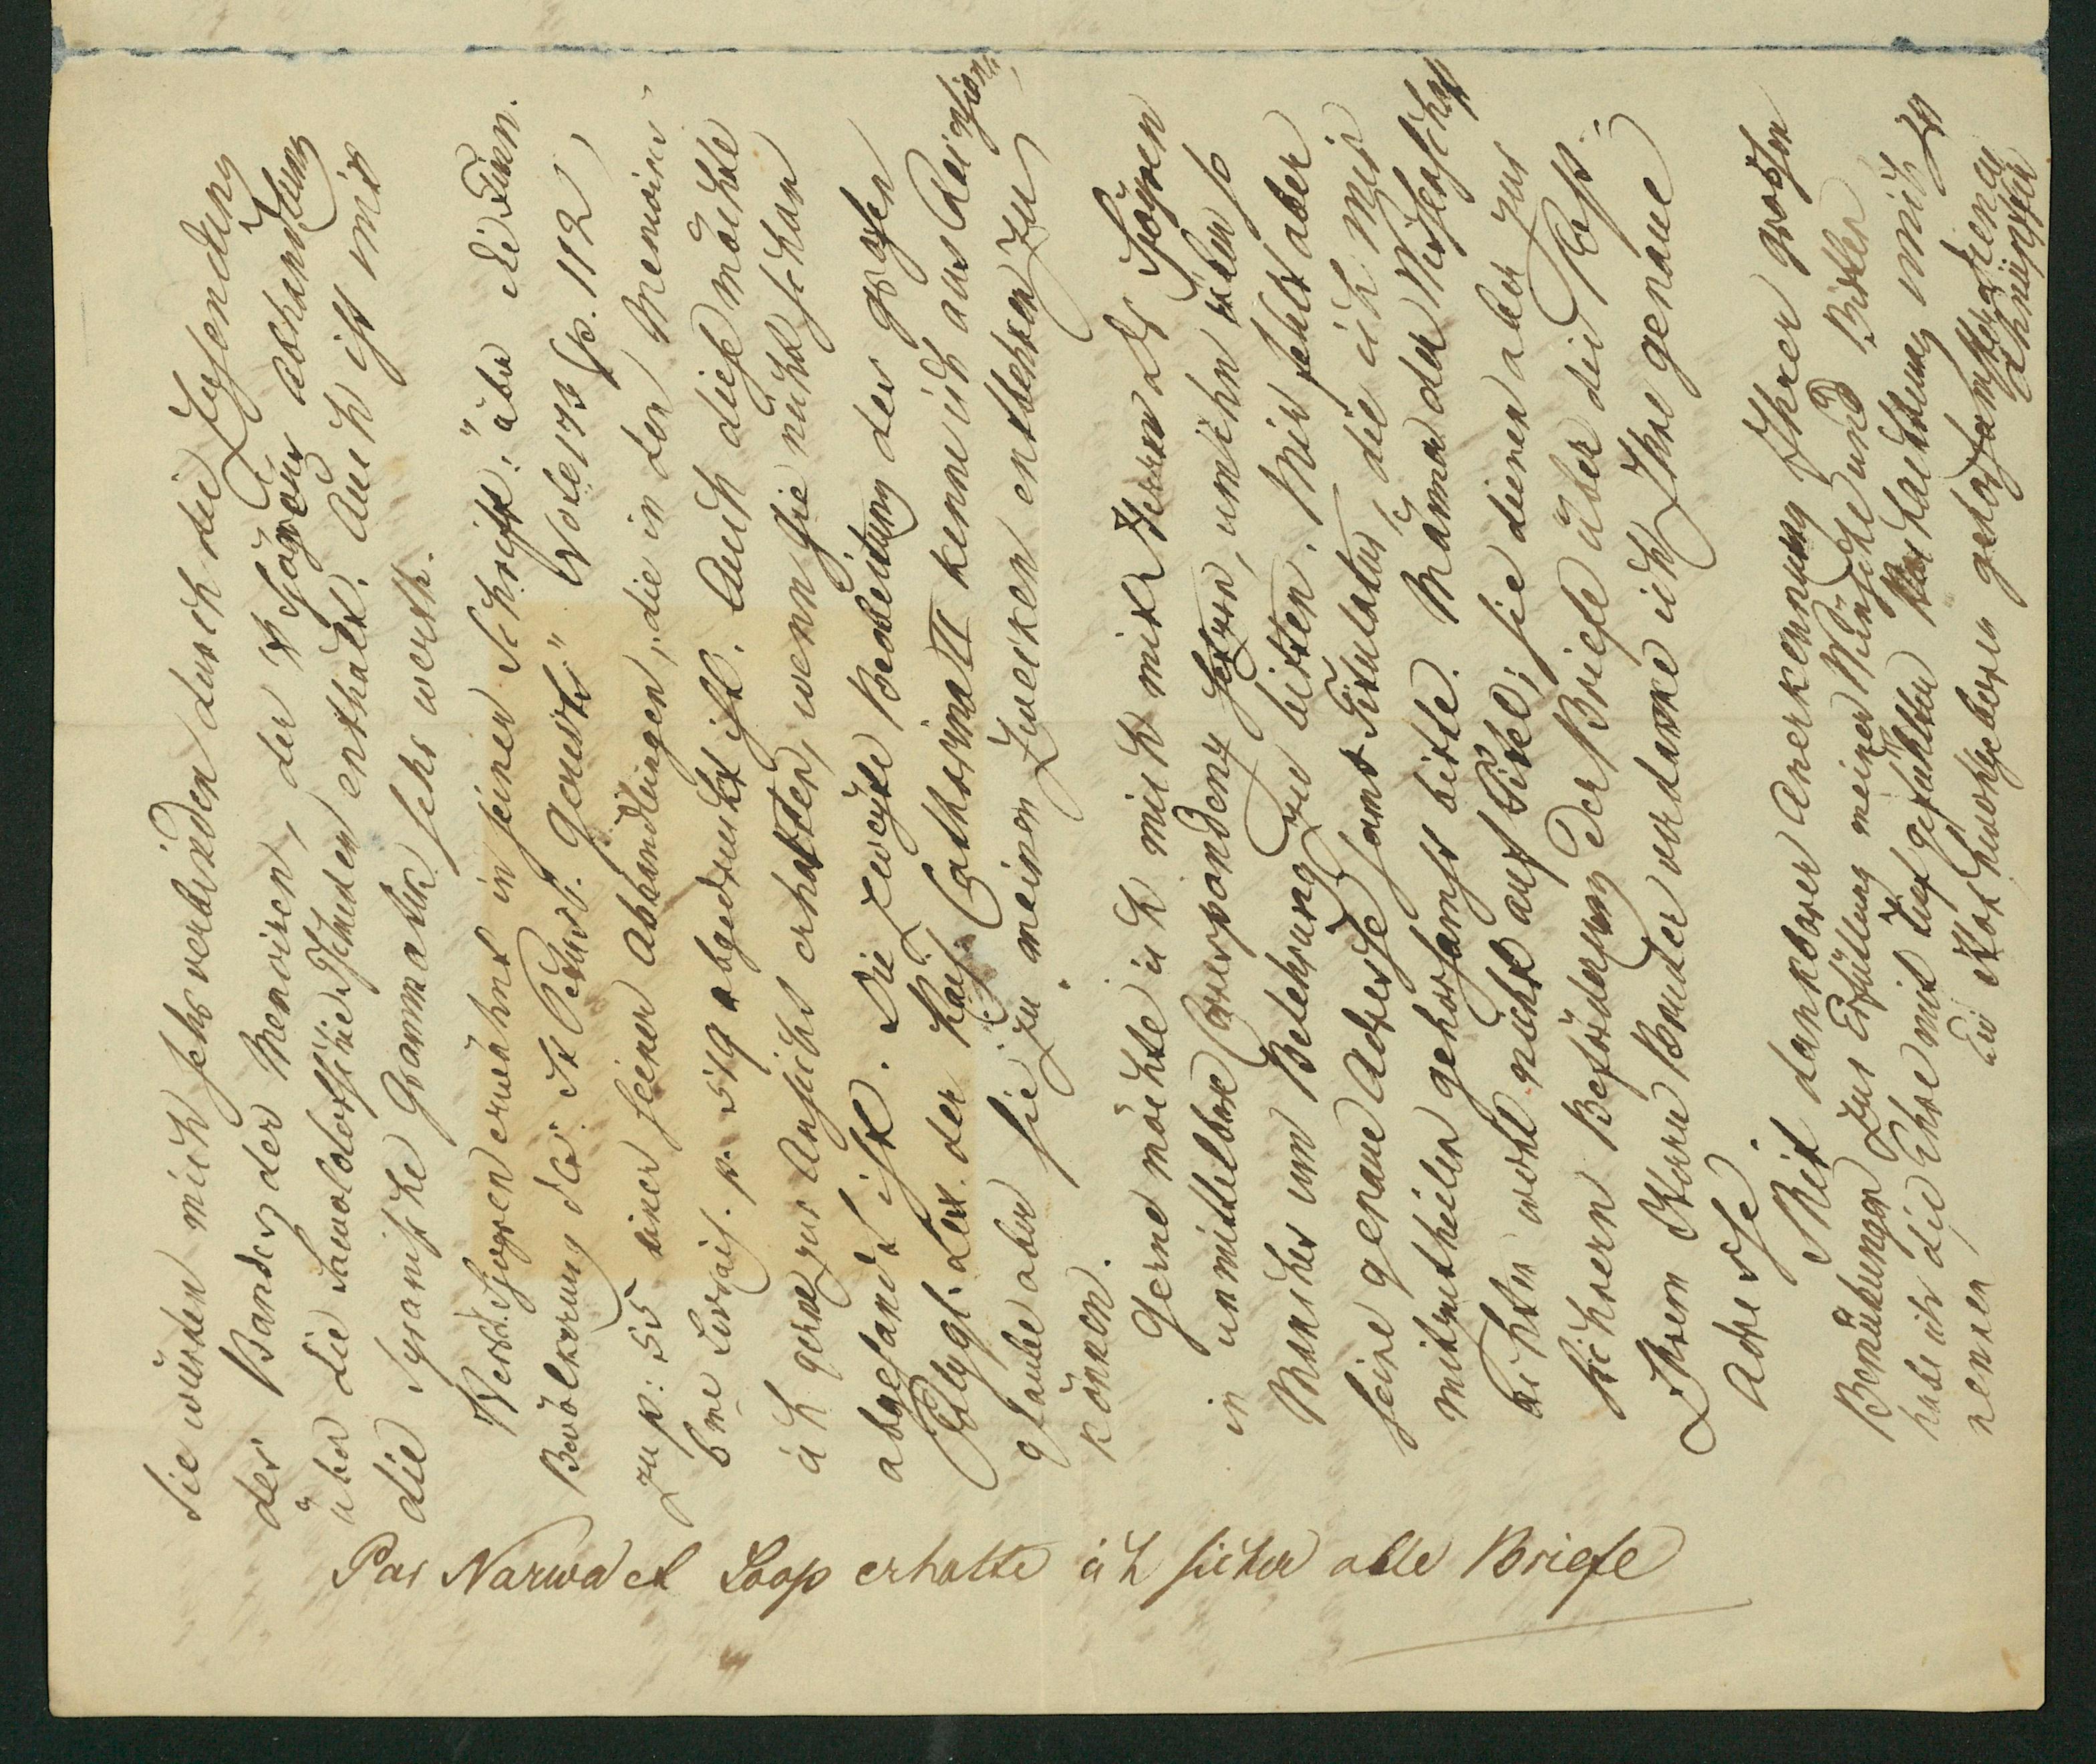 Sie würden mich sehr verbinden durch die Zusendung
des Bandes der Memoiren, der H Sjögrens Abhandlung
über die Sawolokshie. Tschuden enthält. Auch ist mir
die Syränische Grammatik sehr werth.
Sjögren erwähnt in seiner Schrift: über die Finn.
Bevölkerung des St Petersb. Gouvts." Note 173 S. 112
zu p: 55 einer seiner Abhandlungen, die in den Memoiren
6me Série p. 519 abgedruckt ist. Auch diese möchte
ich gerne zur Ansicht erhalten, wenn sie nicht schon
abgesandt ist. Die zweyte Bearbeitung des großen
Lex. der Kais. Catharina II kenne ich aus
glaube aber sie zu meinen Zwecken entbehren zu
können.
Gerne möchte ich mich mit Herrn Sjögren
in unmittelbare Correspondenz setzen, um ihn über so
Manches um Belehrung zu bitten. Mir fehlt aber
seine genaue Adresse samt Titulatur, die ich mir
mitzutheilen gehorsamst bitte. Männer der Wissenschaft
achten wohl nicht auf Titel; sie dienen aber zur
sichrern Beförderung der Briefe über die Post.
Ihrem Herrn Bruder verdanke ich Ihre genaue
Adresse.
Mit dankbarer Anerkennung Ihrer großen
Bemühungen zur Erfüllung meiner Wünsche und Bitten
habe ich die Ehre mit tief gefühlter Hochachtung mich zu
nennen
Ew Hochwohlgeboren gehorsamster Diener
Par Narwa et Loop erhalte ich sicher alle Briefe